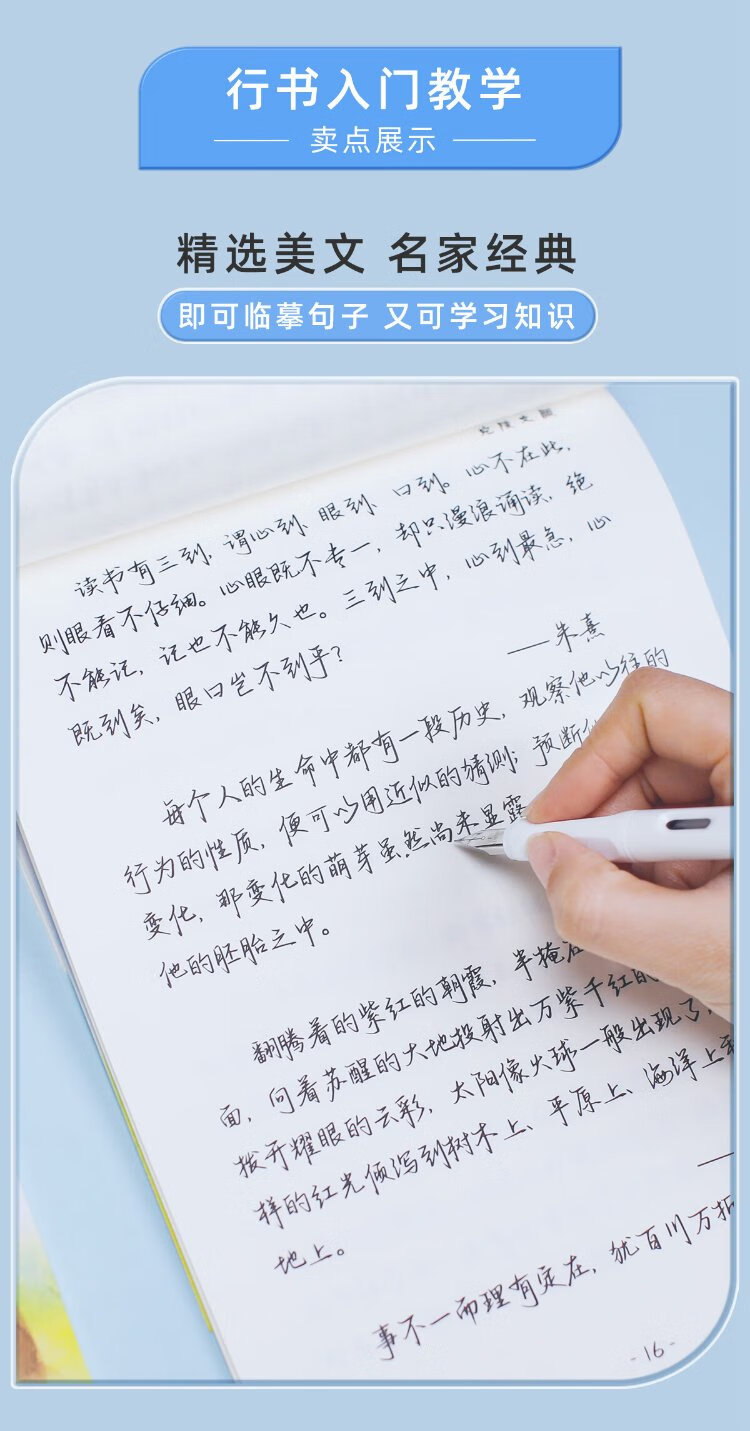 行书入门教学
卖点展示
精选美文 名家经典
即可临摹句子 又可学习知识
读书有三到，谓心到、眼到、口到。心不在此，
则眼看不仔细。心眼既不专一，却只漫浪诵读，绝
不能记，记也不能久也。三到之中，心到最急，心
既到矣，眼口岂不到乎？
——朱熹
每个人的生命中都有一段历史，观察他以往的
行为的性质，便可以用近似的猜测；预断
变化，那变化的萌芽虽然尚未显露
他的胚胎之中。
翻腾着的紫红的朝霞，半掩
面，向着苏醒的大地投射出万紫千红的
拨开耀眼的云彩，太阳像火球一般出现了，
样的红光倾泻到树木上、平原上、海洋上
地上。
事不一而理有定在，犹百川万折
-16-